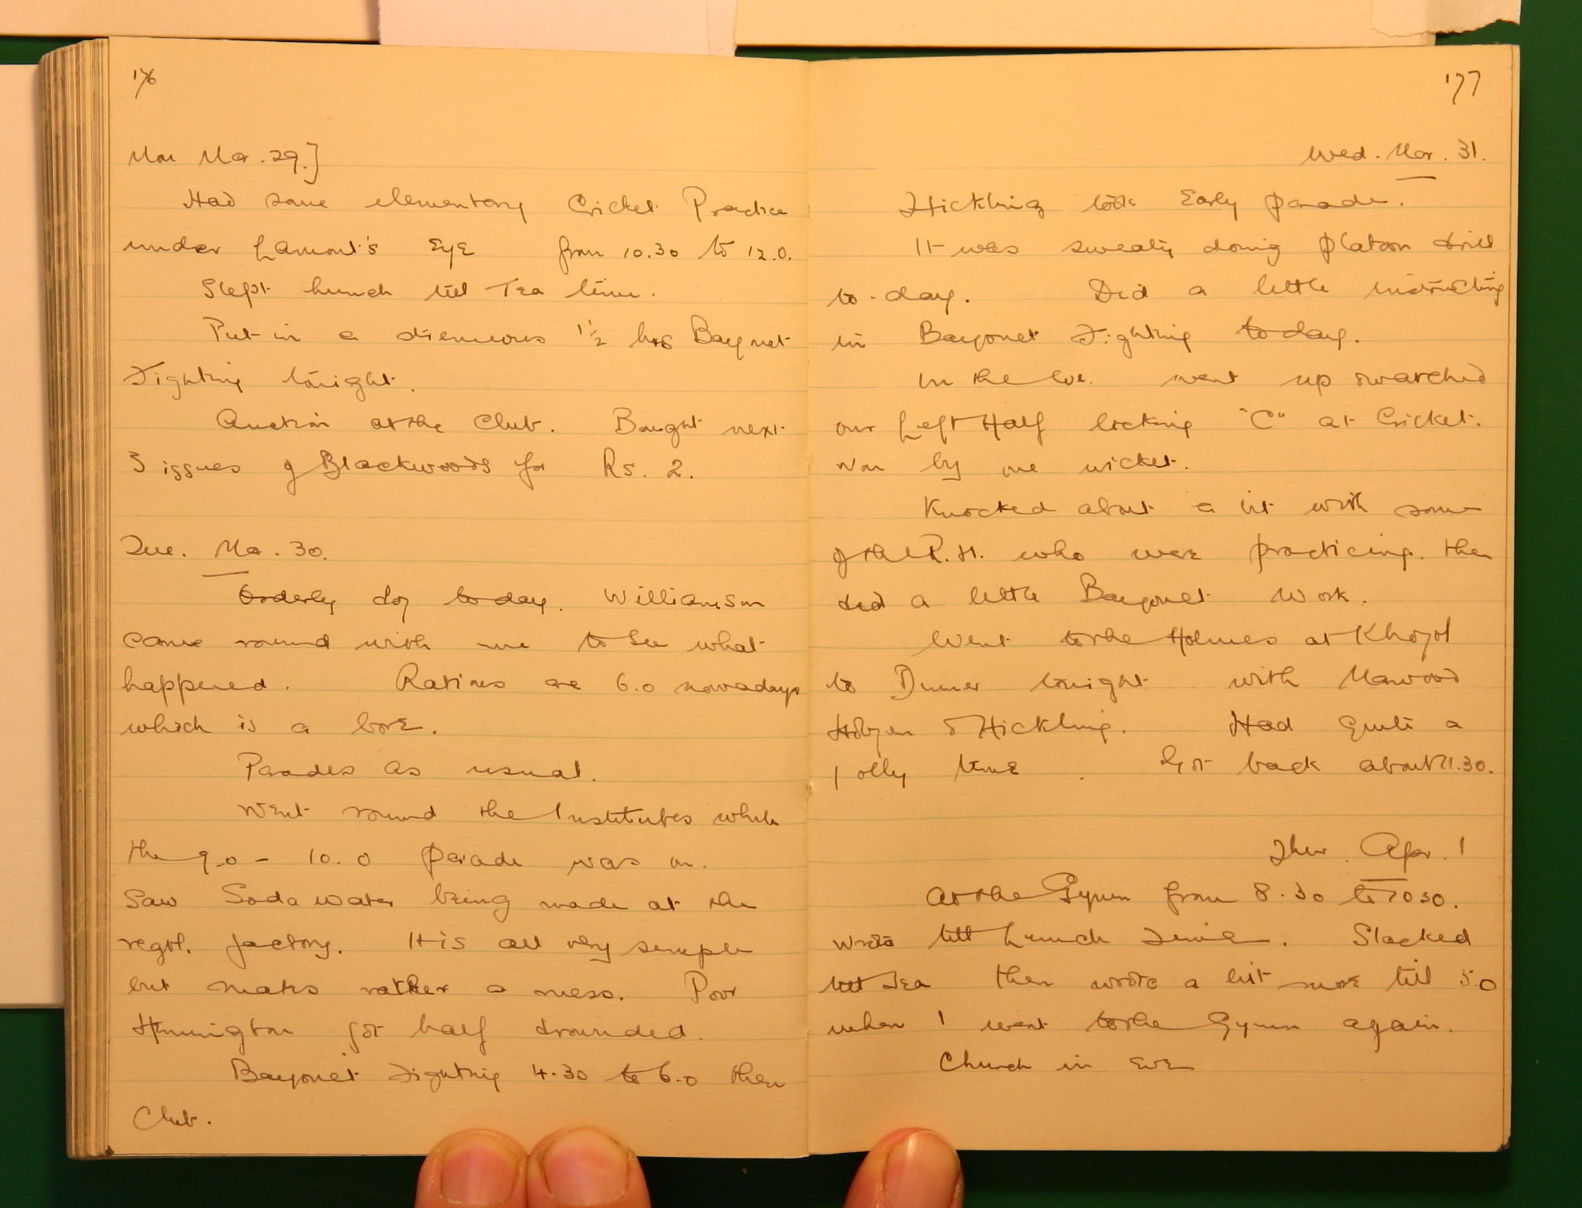 176
Mon Mar. 29.]
Had some elementary Cricket Practice
under Lamont's Eye from 10.30 to 12.0.
Slept lunch till Tea time.
Put in a strenuous 1½ hrs Bayonet
Fighting tonight.
Auction at the Club. Bought next
3 issues of Blackwoods for Rs. 2.
Tue. Mar. 30.
Orderly dog to-day. Williamson
came round with me to see what
happened. Rations are 6.0 nowadays
which is a bore.
Parades as usual.
Went round the Institutes while
the 9.0 - 10.0 parade was on.
Saw Soda water being made at the
regtl. factory. It is all very simple
but makes rather a mess. Poor
Hennington got half drounded.
Bayonet Fighting 4.30 to 6.0 then
Club.
177
Wed. Mar. 31.
Hickling took Early parade.
It was sweaty doing platoon drill
to-day. Did a little instructing
in Bayonet Fighting to day.
In the eve. went up & watched
our Left Half licking "C" at Cricket.
Won by one wicket.
Knocked about a bit with some
of the R.H. who were practicing. then
did a little Bayonet work.
Went to the Holmes at
to Dinner tonight with Marwood
& Hickling. Had quite a
jolly time. Got back about 11.30.
Thur. Apr. 1
At the Gymn from 8.30 to 1030.
Wrote till Lunch Time. Slacked
till Tea then wrote a bit more till 5.0
when I went to the Gymn again.
Church in Eve